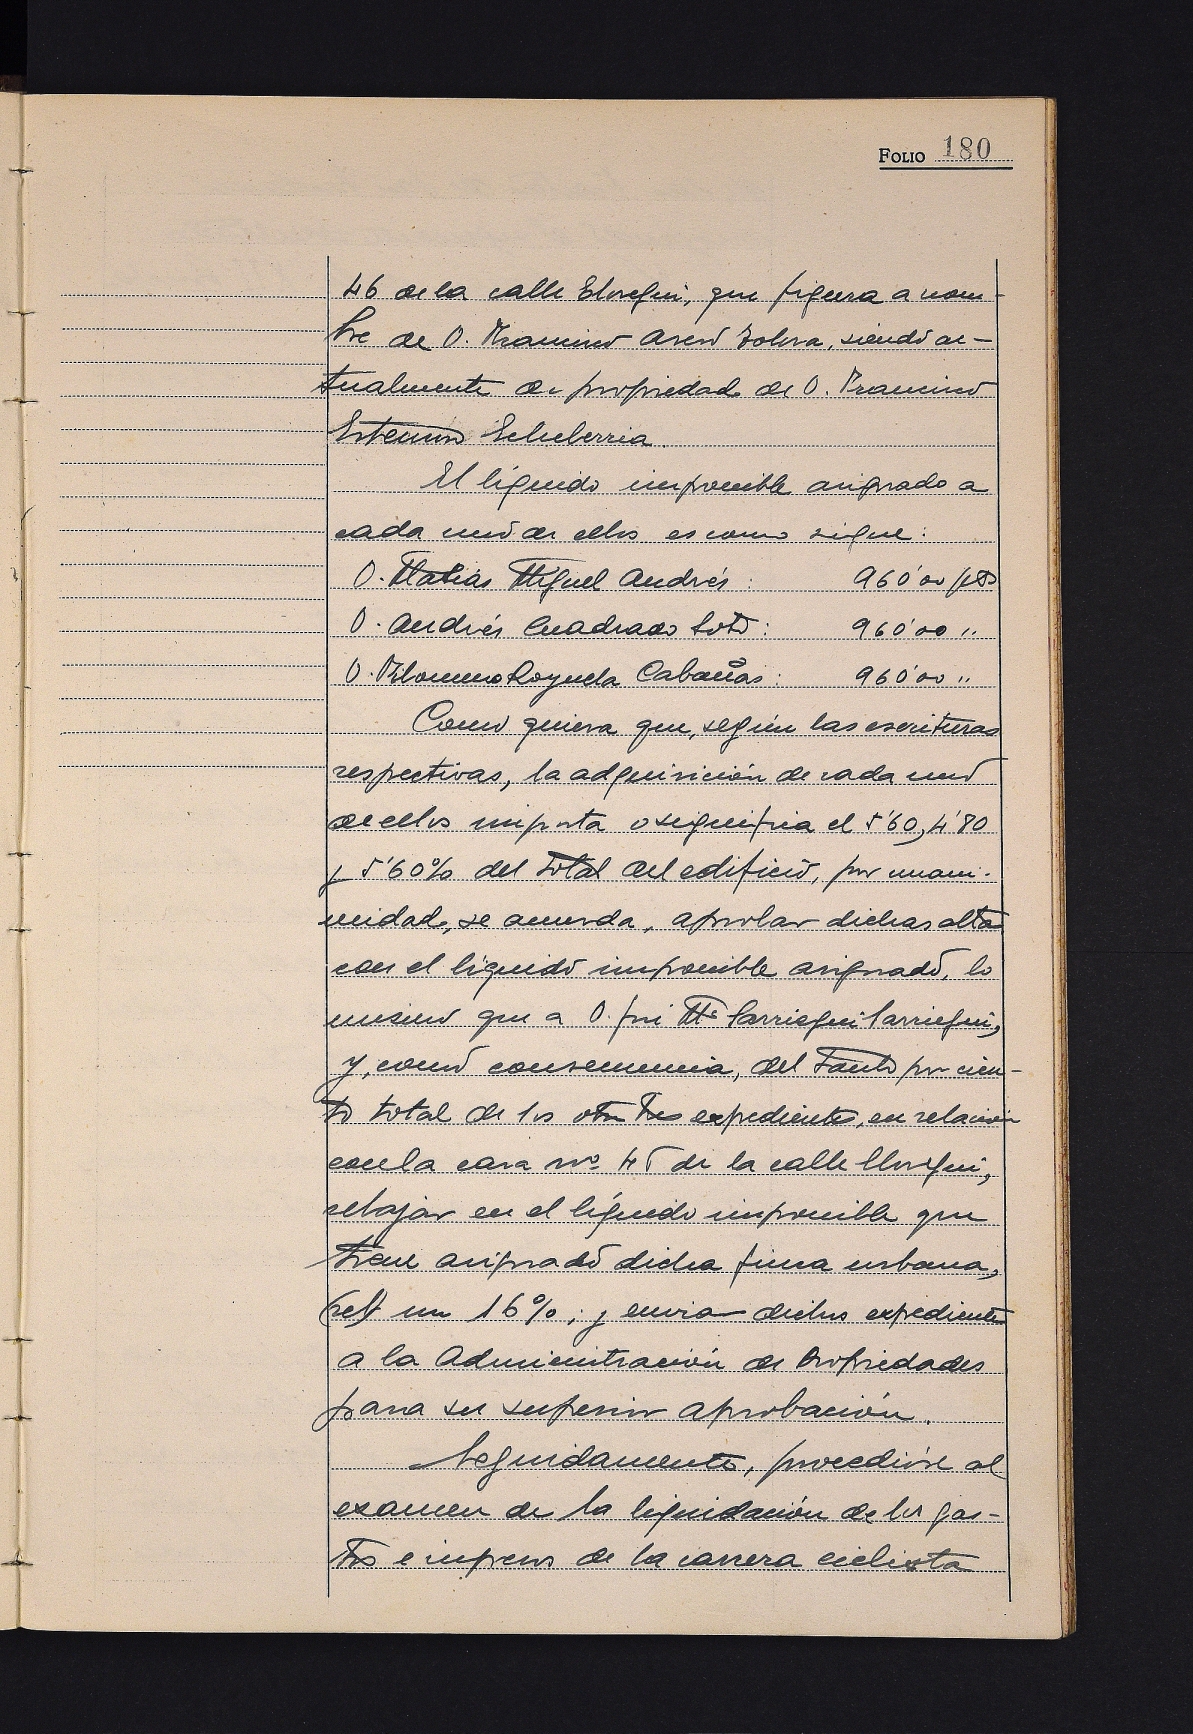 FOLIO 180
46 de la calle Elosegui, que figura a nom-
bre de D. Francisco Aseró Zolora, siendo ac-
tualmente de propiedad de D. Francisco
Echeberria.
El líquido imponible asignado a
cada uno de ellos es como sigue:
D. Matías Miguel Andrés: 960'00 pts
D. Andrés Cuadrado Soto: 960'00 "
D. Filomeno Royuela Cabañas: 960'00 "
Como quiera que, según las escrituras
respectivas, la adquisición de cada uno
de ellos importa o significa el 5'60, 4'80
y 5'60% del total del edificio, por unani-
midad, se acuerda, aprobar dichas altas
con el líquido imponible asignado, lo
mismo que a D. José Mª Larriegui Larriegui,
y, como consecuencia, del tanto por cien-
to total de los otros tres expedientes, en relación
con la casa nº 45 de la calle Elosegui,
rebajar en el líquido imponible que
tiene asignado dicha finca urbana,
un 16%; y enviar dichos expedientes
a la Administración de Propiedades
para su superior aprobación.
Seguidamente, procedióse al
examen de la liquidación de los gas-
tos e ingresos de la carrera ciclista